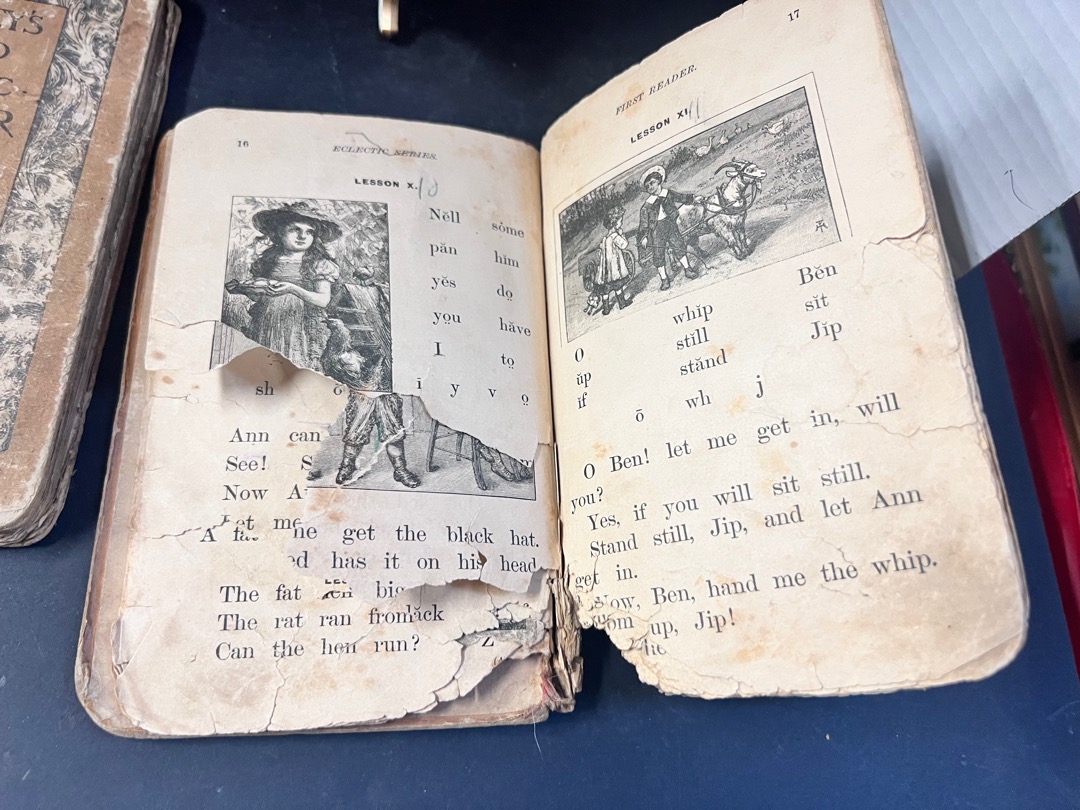 16
ECLECTIC SERIES.
LESSON X.
10
Nĕll sȯme
păn hĭm
yĕs do̤
yo̤u hăve
I to̤
sh ī y v o̤
Ann can
See! S
Now A
Let me
A fat
me get the black hat.
ed has it on his head
The fat hen big
The rat ran from
lăck
Can the hen run?
17
FIRST READER.
LESSON XI.
11
O whĭp Bĕn
ŭp stĭll sĭt
ĭf stănd Jĭp
ō wh j
O Ben! let me get in, will
you?
Yes, if you will sit still.
Stand still, Jip, and let Ann
get in.
Now, Ben, hand me the whip.
up, Jip!